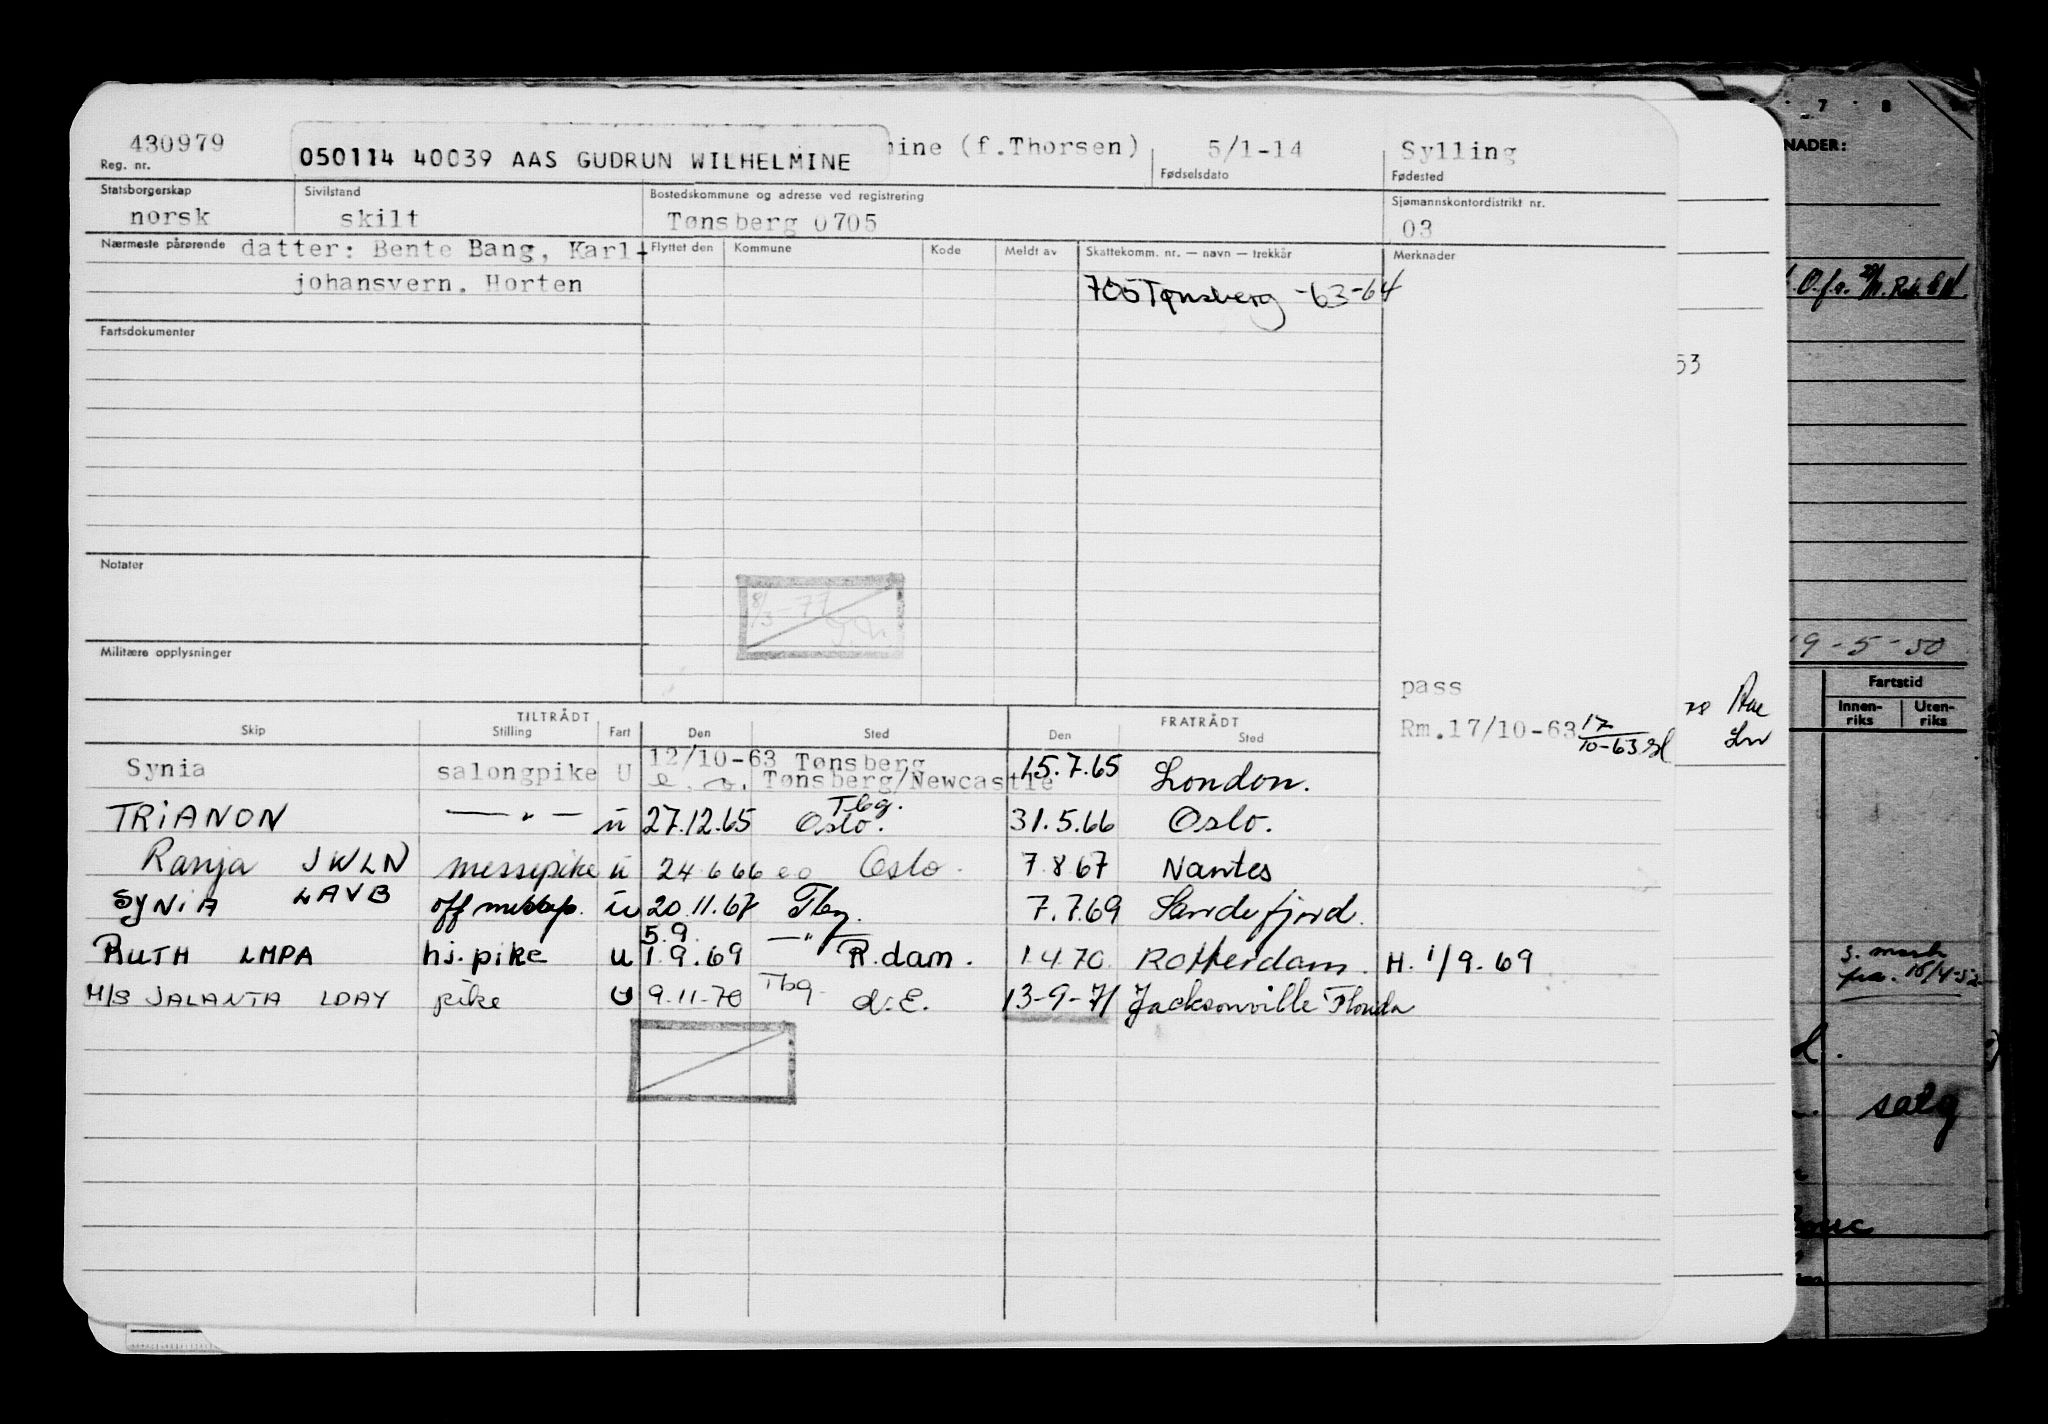 430979 050114 40039 AAS GUDRUN WILHELMINE mine (f.Thorsen) 5/1-14 Sylling
Reg. nr. Fødselsdato Fødested
Statsborgerskap Sivilstand Bostedskommune og adresse ved registrering Sjømannskontordistrikt nr.
norsk skilt Tønsberg 0705 03
Nærmeste pårørende datter: Bente Bang, Karl- Flyttet den Kommune Kode Meldt av Skattekomm. nr. — navn — trekkår Merknader
johansvern. Horten 705 Tønsberg -63-64
Fartsdokumenter
Notater
8/3-77
Militære opplysninger
pass
Rm.17/10-63 17/10-63
TILTRÅDT FRATRÅDT
Skip Stilling Fart Den Sted Den Sted
Synia salongpike U 12/10-63 Tønsberg 15.7.65 London.
e. o. Tønsberg/Newcastle
TRIANON — " — u 27.12.65 Tbg. Oslo. 31.5.66 Oslo.
Ranja JWLN messepike u 24.6.66 e o Oslo. 7.8.67 Nantes
SYNIA LAVB off messep. u 20.11.67 Tbg. 7.7.69 Sandefjord.
5.9. — " —
RUTH LMPA hj.pike u 1.9.69 R.dam. 1.4.70 Rotterdam. H. 1/9.69
M/S JALANTA LDAY pike U 9.11-70 Tbg. d.E. 13-9-71 Jacksonville Florida
7 8
NADER:
53
19-5-50
Fartstid
Innen-riks Uten-riks
salg